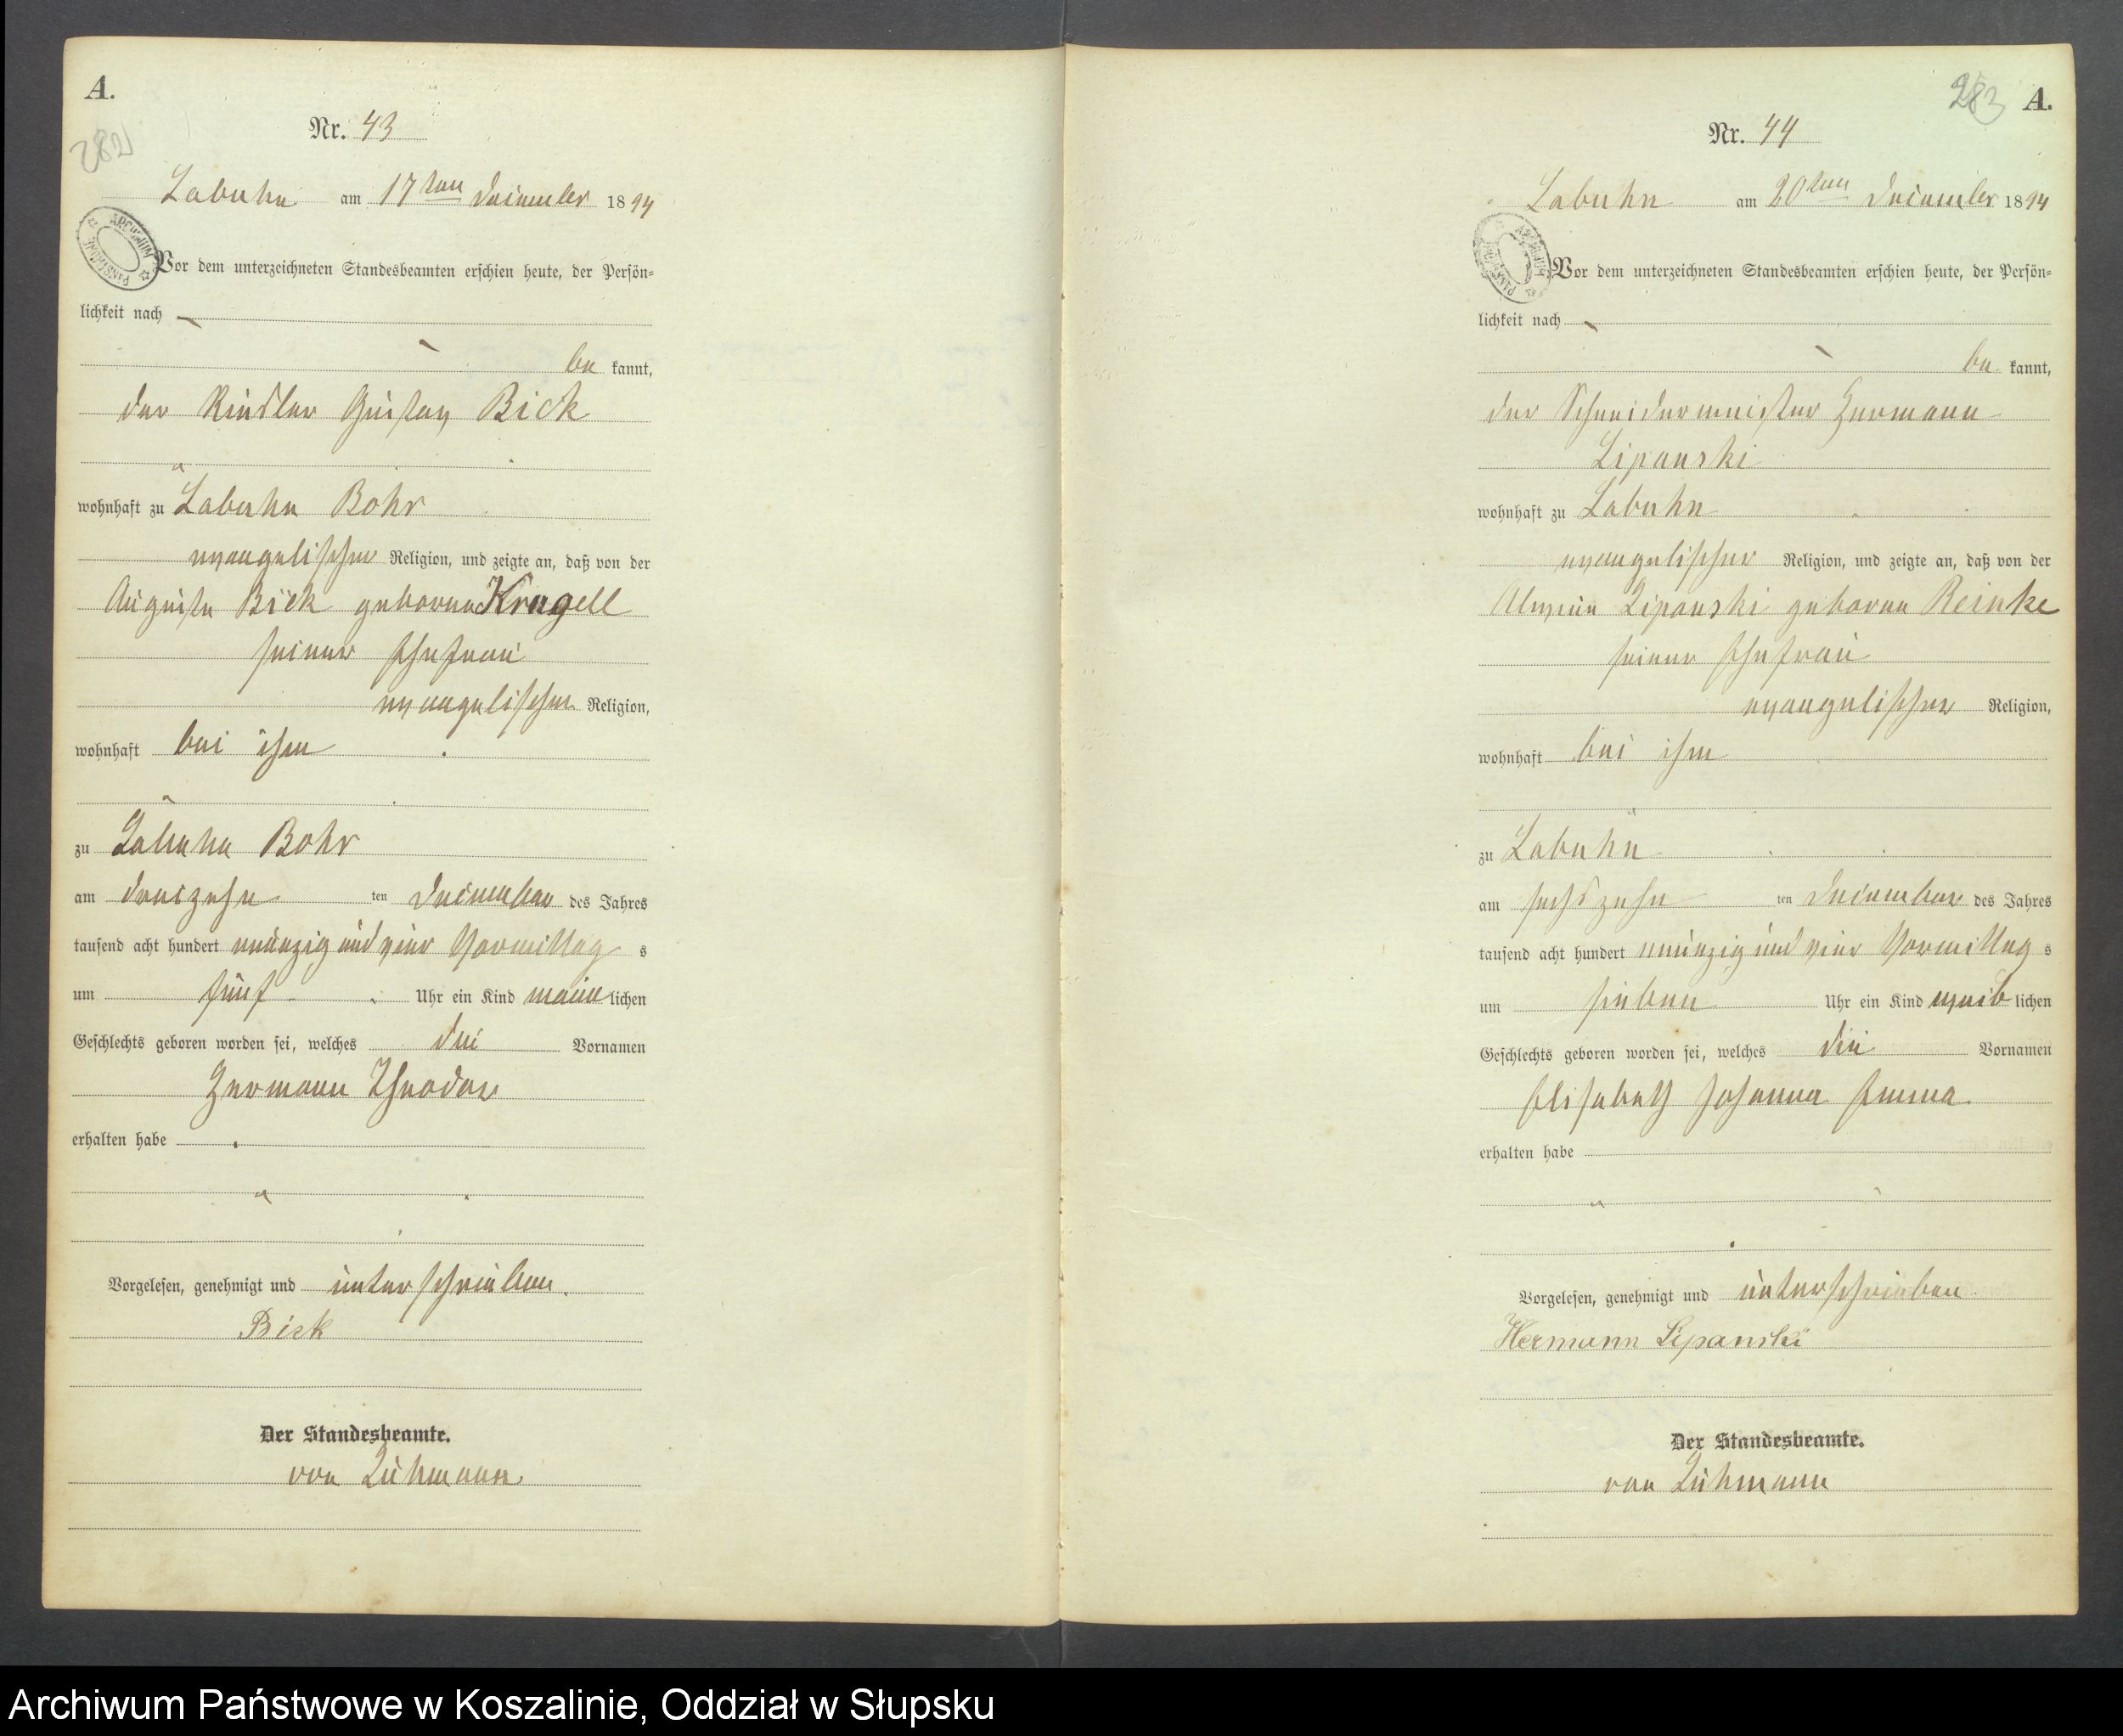 A.
282
Nr. 43
Labuhn am 17ten Dezember 1894
ARCHIWUM PAŃSTWOWE
Vor dem unterzeichneten Standesbeamten erschien heute, der Persön-
lichkeit nach
be kannt,
der Gustav Bick
wohnhaft zu Labuhn Bohr
evangelischer Religion, und zeigte an, daß von der
Auguste Bick geborene Kragell
seiner Ehefrau
evangelischer Religion,
wohnhaft bei ihm
zu Labuhn Bohr
am dreizehn ten Dezember des Jahres
tausend acht hundert neunzig und vier Vormittag s
um fünf Uhr ein Kind männ lichen
Geschlechts geboren worden sei, welches die Vornamen
Hermann Theodor
erhalten habe
Vorgelesen, genehmigt und unterschrieben.
Bick
Der Standesbeamte.
von Luhmann
283
A.
Nr. 44
Labuhn am 20ten Dezember 1894
ARCHIWUM PAŃSTWOWE
Vor dem unterzeichneten Standesbeamten erschien heute, der Persön-
lichkeit nach
be kannt,
der Schneidermeister Hermann
Lipanski
wohnhaft zu Labuhn
evangelischer Religion, und zeigte an, daß von der
Alwine Lipanski geborene Reinke
seiner Ehefrau
evangelischer Religion,
wohnhaft bei ihm
zu Labuhn
am sechszehn ten Dezember des Jahres
tausend acht hundert neunzig und vier Vormittag s
um sieben Uhr ein Kind weib lichen
Geschlechts geboren worden sei, welches die Vornamen
Elisabeth Johanna Emma.
erhalten habe
Vorgelesen, genehmigt und unterschrieben
Hermann Lipanski
Der Standesbeamte.
von Luhmann
Archiwum Państwowe w Koszalinie, Oddział w Słupsku